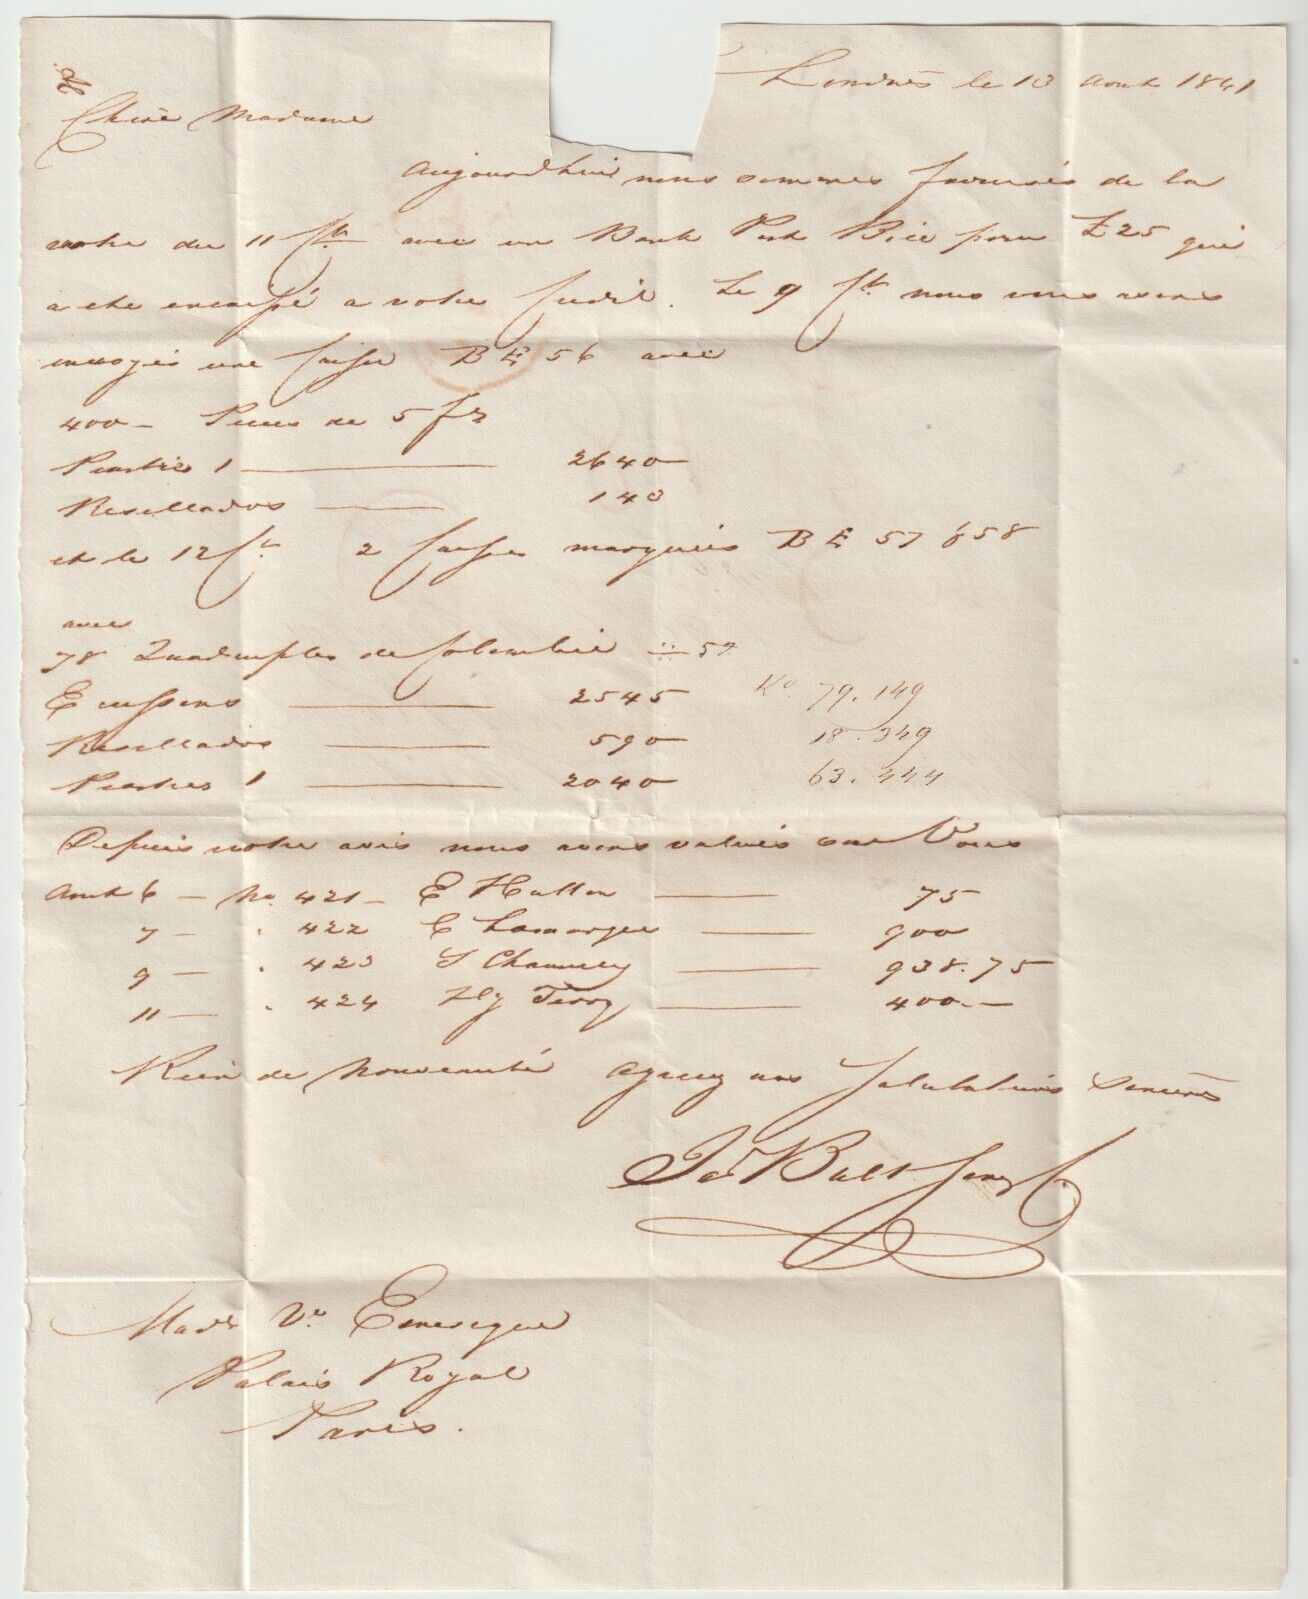 Londres le 13 Aout 1841
Chère Madame
Aujourdhui nous sommes favorisés de la
votre du 11 Ct avec un Bank Post Bill pour £25 qui
a ete encaissé a votre Credit. Le 9 Ct nous vous avons
envoyés une Caisse BE 56 avec
400 — Pieces de 5 frs
Piastres 1 — 2640 —
Resellados — 143
et le 12 Ct 2 Caisses marquées BE 57 & 58
avec
78 Quadruples de Colombie 57
Ecussons — 2545 Ko. 79.149
Resellados — 590 — 18.349
Piastres 1 — 2040 — 63.444
Depuis notre avis nous avons valués sur Vous
Aout 6 — No. 421 — E Hutton — 75
7 — . 422 C Lamorgue — 900
9 — . 423 S Chauncey — 938.75
11 — . 424 Hy Terry — 400 —
Rien de nouveauté Agreez nos Salutations Sinceres
Jas Bult Sons & Co.
Made Ve Emerique
Palais Royal
Paris.